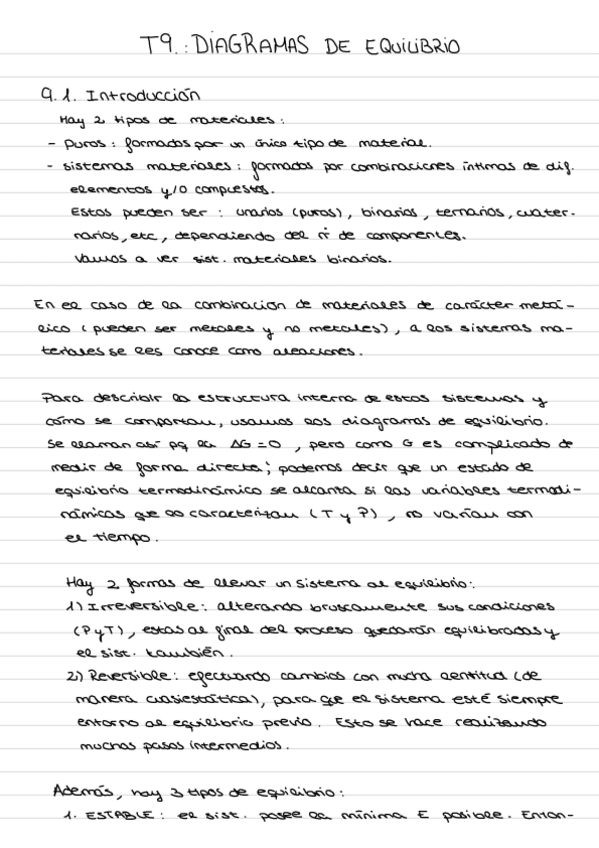 T9.: DIAGRAMAS DE EQUILIBRIO
9.1. Introducción
Hay 2 tipos de materiales:
- Puros: formados por un único tipo de material.
- Sistemas materiales: formados por combinaciones íntimas de dif.
elementos y/o compuestos.
Estos pueden ser: unarios (puros), binarios, ternarios, cuater-
narios, etc, dependiendo del nº de componentes.
Vamos a ver sist. materiales binarios.
En el caso de la combinación de materiales de carácter metá-
lico (pueden ser metales y no metales), a los sistemas ma-
teriales se les conoce como aleaciones.
Para describir la estructura interna de estos sistemas y
cómo se comportan, usamos los diagramas de equilibrio.
Se llaman así pq la ΔG = 0, pero como G es complicado de
medir de forma directa; podemos decir que un estado de
equilibrio termodinámico se alcanza si las variables termodi-
námicas que lo caracterizan (T y P), no varían con
el tiempo.
Hay 2 formas de llevar un sistema al equilibrio:
1) Irreversible: alterando bruscamente sus condiciones
(P y T), estas al final del proceso quedarán equilibradas y
el sist. también.
2) Reversible: efectuando cambios con mucha lentitud (de
manera cuasiestática), para que el sistema esté siempre
entorno al equilibrio previo. Esto se hace realizando
muchos pasos intermedios.
Además, hay 3 tipos de equilibrio:
1. ESTABLE: el sist. posee la mínima E posible. Enton-